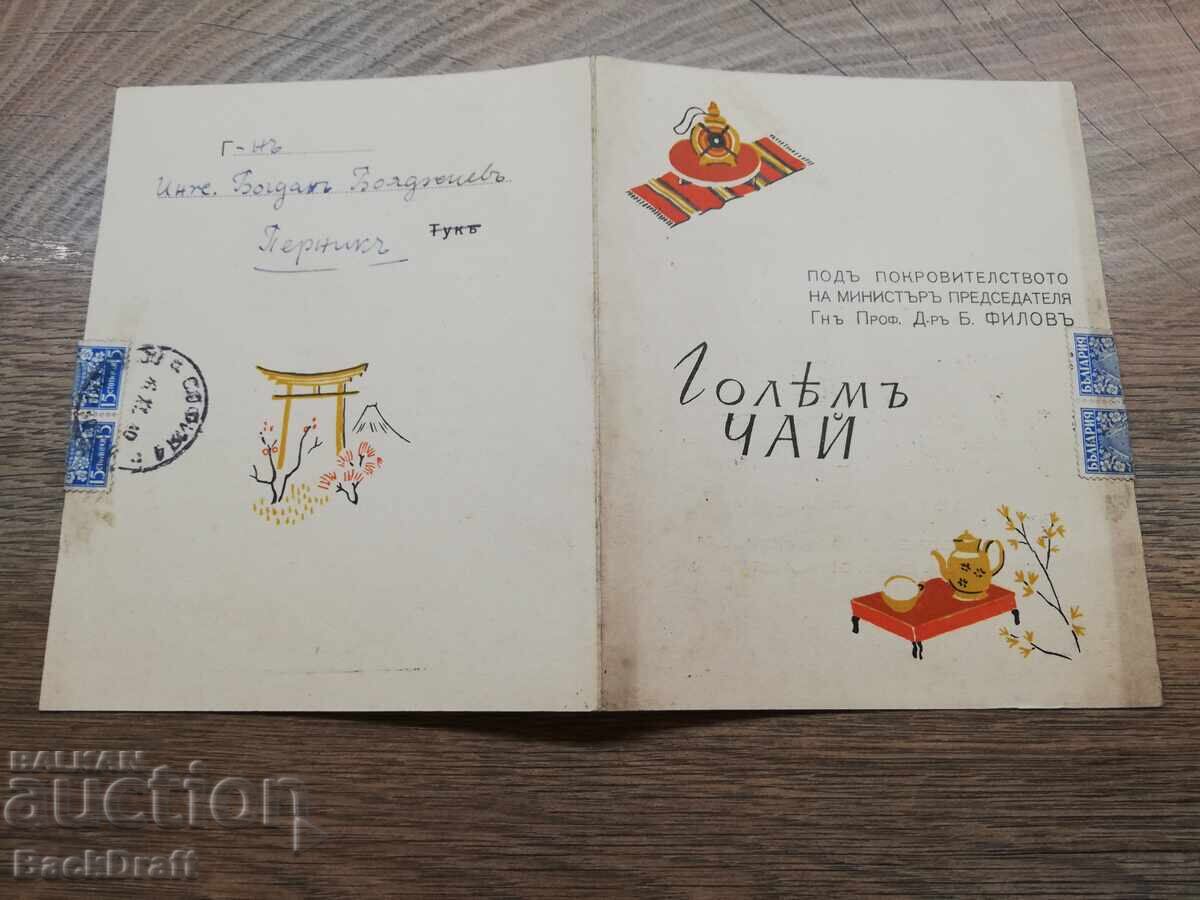 Г-нъ
Инж. Богданъ Бояджиевъ
Перникъ
Тукъ
15
15
СОФИЯ
ПОДЪ ПОКРОВИТЕЛСТВОТО
НА МИНИСТЪРЪ ПРЕДСЕДАТЕЛЯ
Гнъ Проф. Д-ръ Б. ФИЛОВЪ
ГОЛѢМЪ
ЧАЙ
БЪЛГАРИЯ
БЪЛГАРИЯ
BALKAN
auction
BackDraft